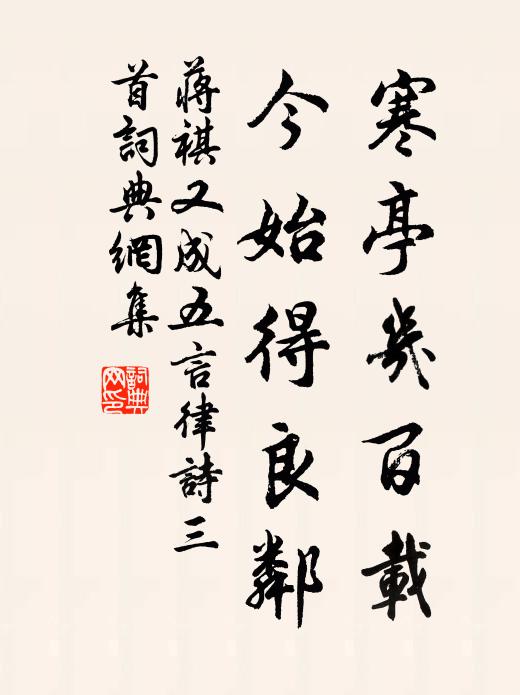 寒亭幾百載
今始得良鄰
蔣祺又成五言律詩三
首詞典網集
詞典網印